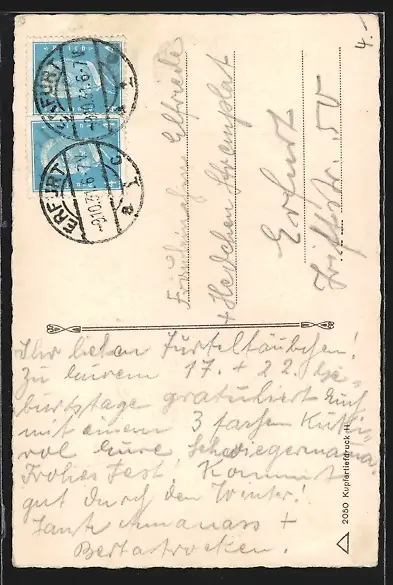 4.
ERFURT
ERFURT
Fräuleins Elfriede
+ Hedchen
Erfurt
Triftstr. 50
Ihr lieben Turteltäubchen!
Zu eurem 17. + 22. Ge-
burtstage gratuliert Euch
mit einem 3 fachen Kuli-
rol Eure Schwiegermama.
Frohes Fest! Kommt
gut durch den Winter!
Tante Ananass +
Bertastrocken.
2050 Kupfertiefdruck H